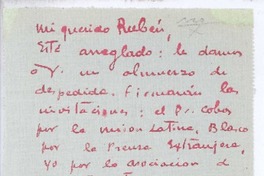 mi querido Rubén,
Está arreglado: le damos
a V. un almuerzo de
despedida. Firmarán las
invitaciones: el Pr. Cobos
por la Union Latina, Blanco
por la Prensa Extranjera,
yo por la asociacion de